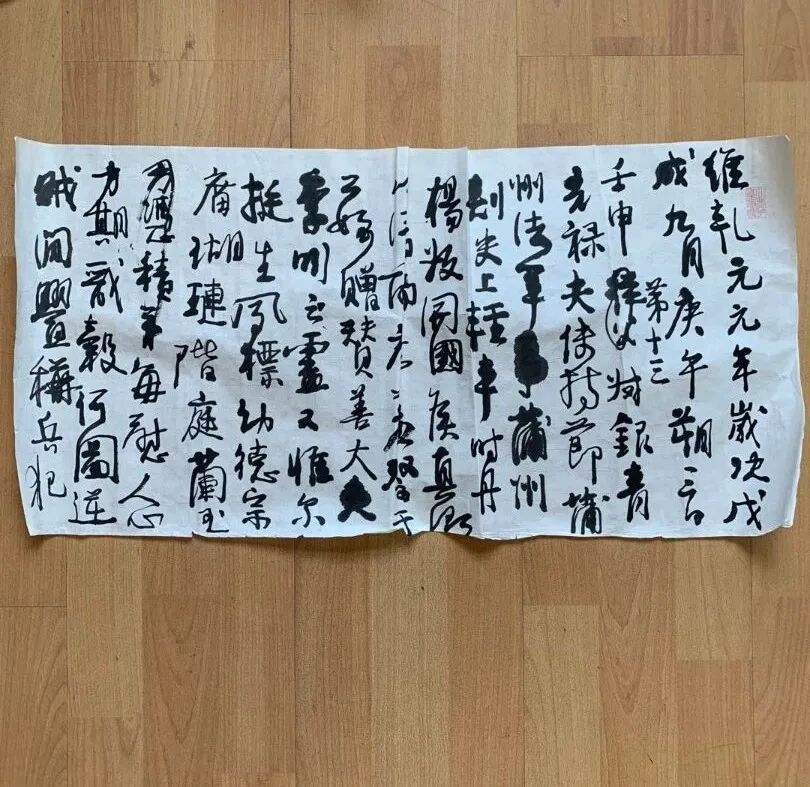 維乾元元年歲次戊
戌九月庚午朔三日
壬申第十三叔銀青
光禄夫使持節蒲
州諸軍事蒲州
刺史上輕車丹
楊開國侯真卿
以清酌庶羞祭于
贈贊善大夫
季明之靈惟尔
挺生夙標幼德宗
廟瑚璉階庭蘭玉
積善每慰人心
方期戩穀何圖逆
賊間釁稱兵犯